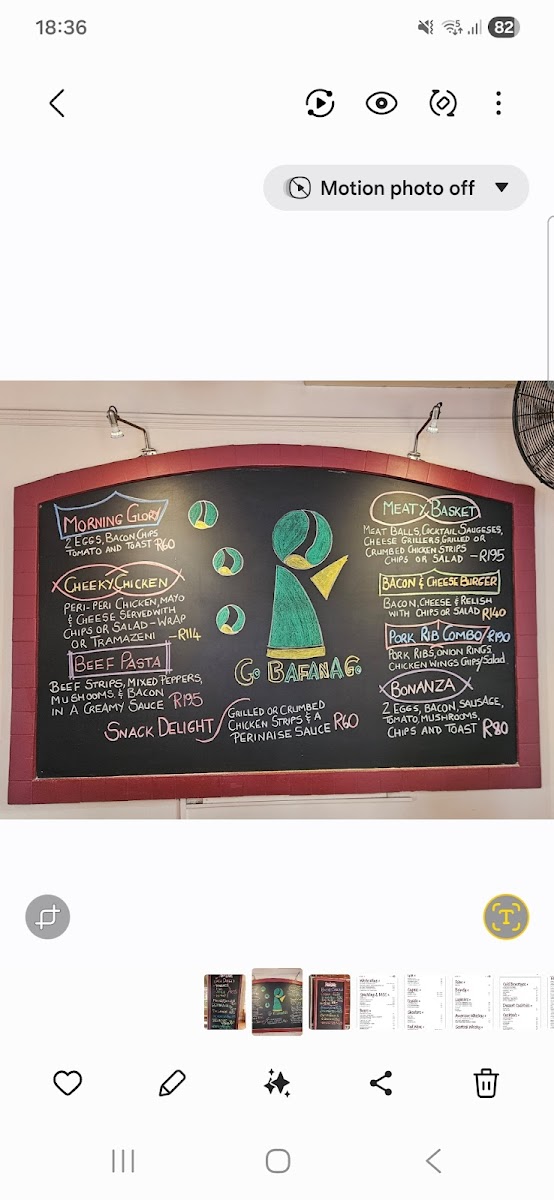 18:36
82
Motion photo off
MORNING GLORY
2 EGGS, BACON CHIPS
TOMATO AND TOAST R60
CHEEKY CHICKEN
PERI-PERI CHICKEN, MAYO
& CHEESE SERVED WITH
CHIPS OR SALAD - WRAP
OR TRAMAZENI - R114
BEEF PASTA
BEEF STRIPS, MIXED PEPPERS,
MUSHOOMS, & BACON
IN A CREAMY SAUCE R195
SNACK DELIGHT
GRILLED OR CRUMBED
CHICKEN STRIPS & A
PERINAISE SAUCE R60
GO BAFANA GO
MEATY BASKET
MEAT BALLS, COCKTAIL SAUGESES,
CHEESE GRILLERS, GRILLED OR
CRUMBED CHICKEN STRIPS
CHIPS OR SALAD - R195
BACON & CHEESE BURGER
BACON, CHEESE & RELISH
WITH CHIPS OR SALAD R140
PORK RIB COMBO/R190
PORK RIBS, ONION RINGS
CHICKEN WINGS CHIPS/SALAD
BONANZA
2 EGGS, BACON, SAUSAGE,
TOMATO, MUSHROOMS,
CHIPS AND TOAST R80
T